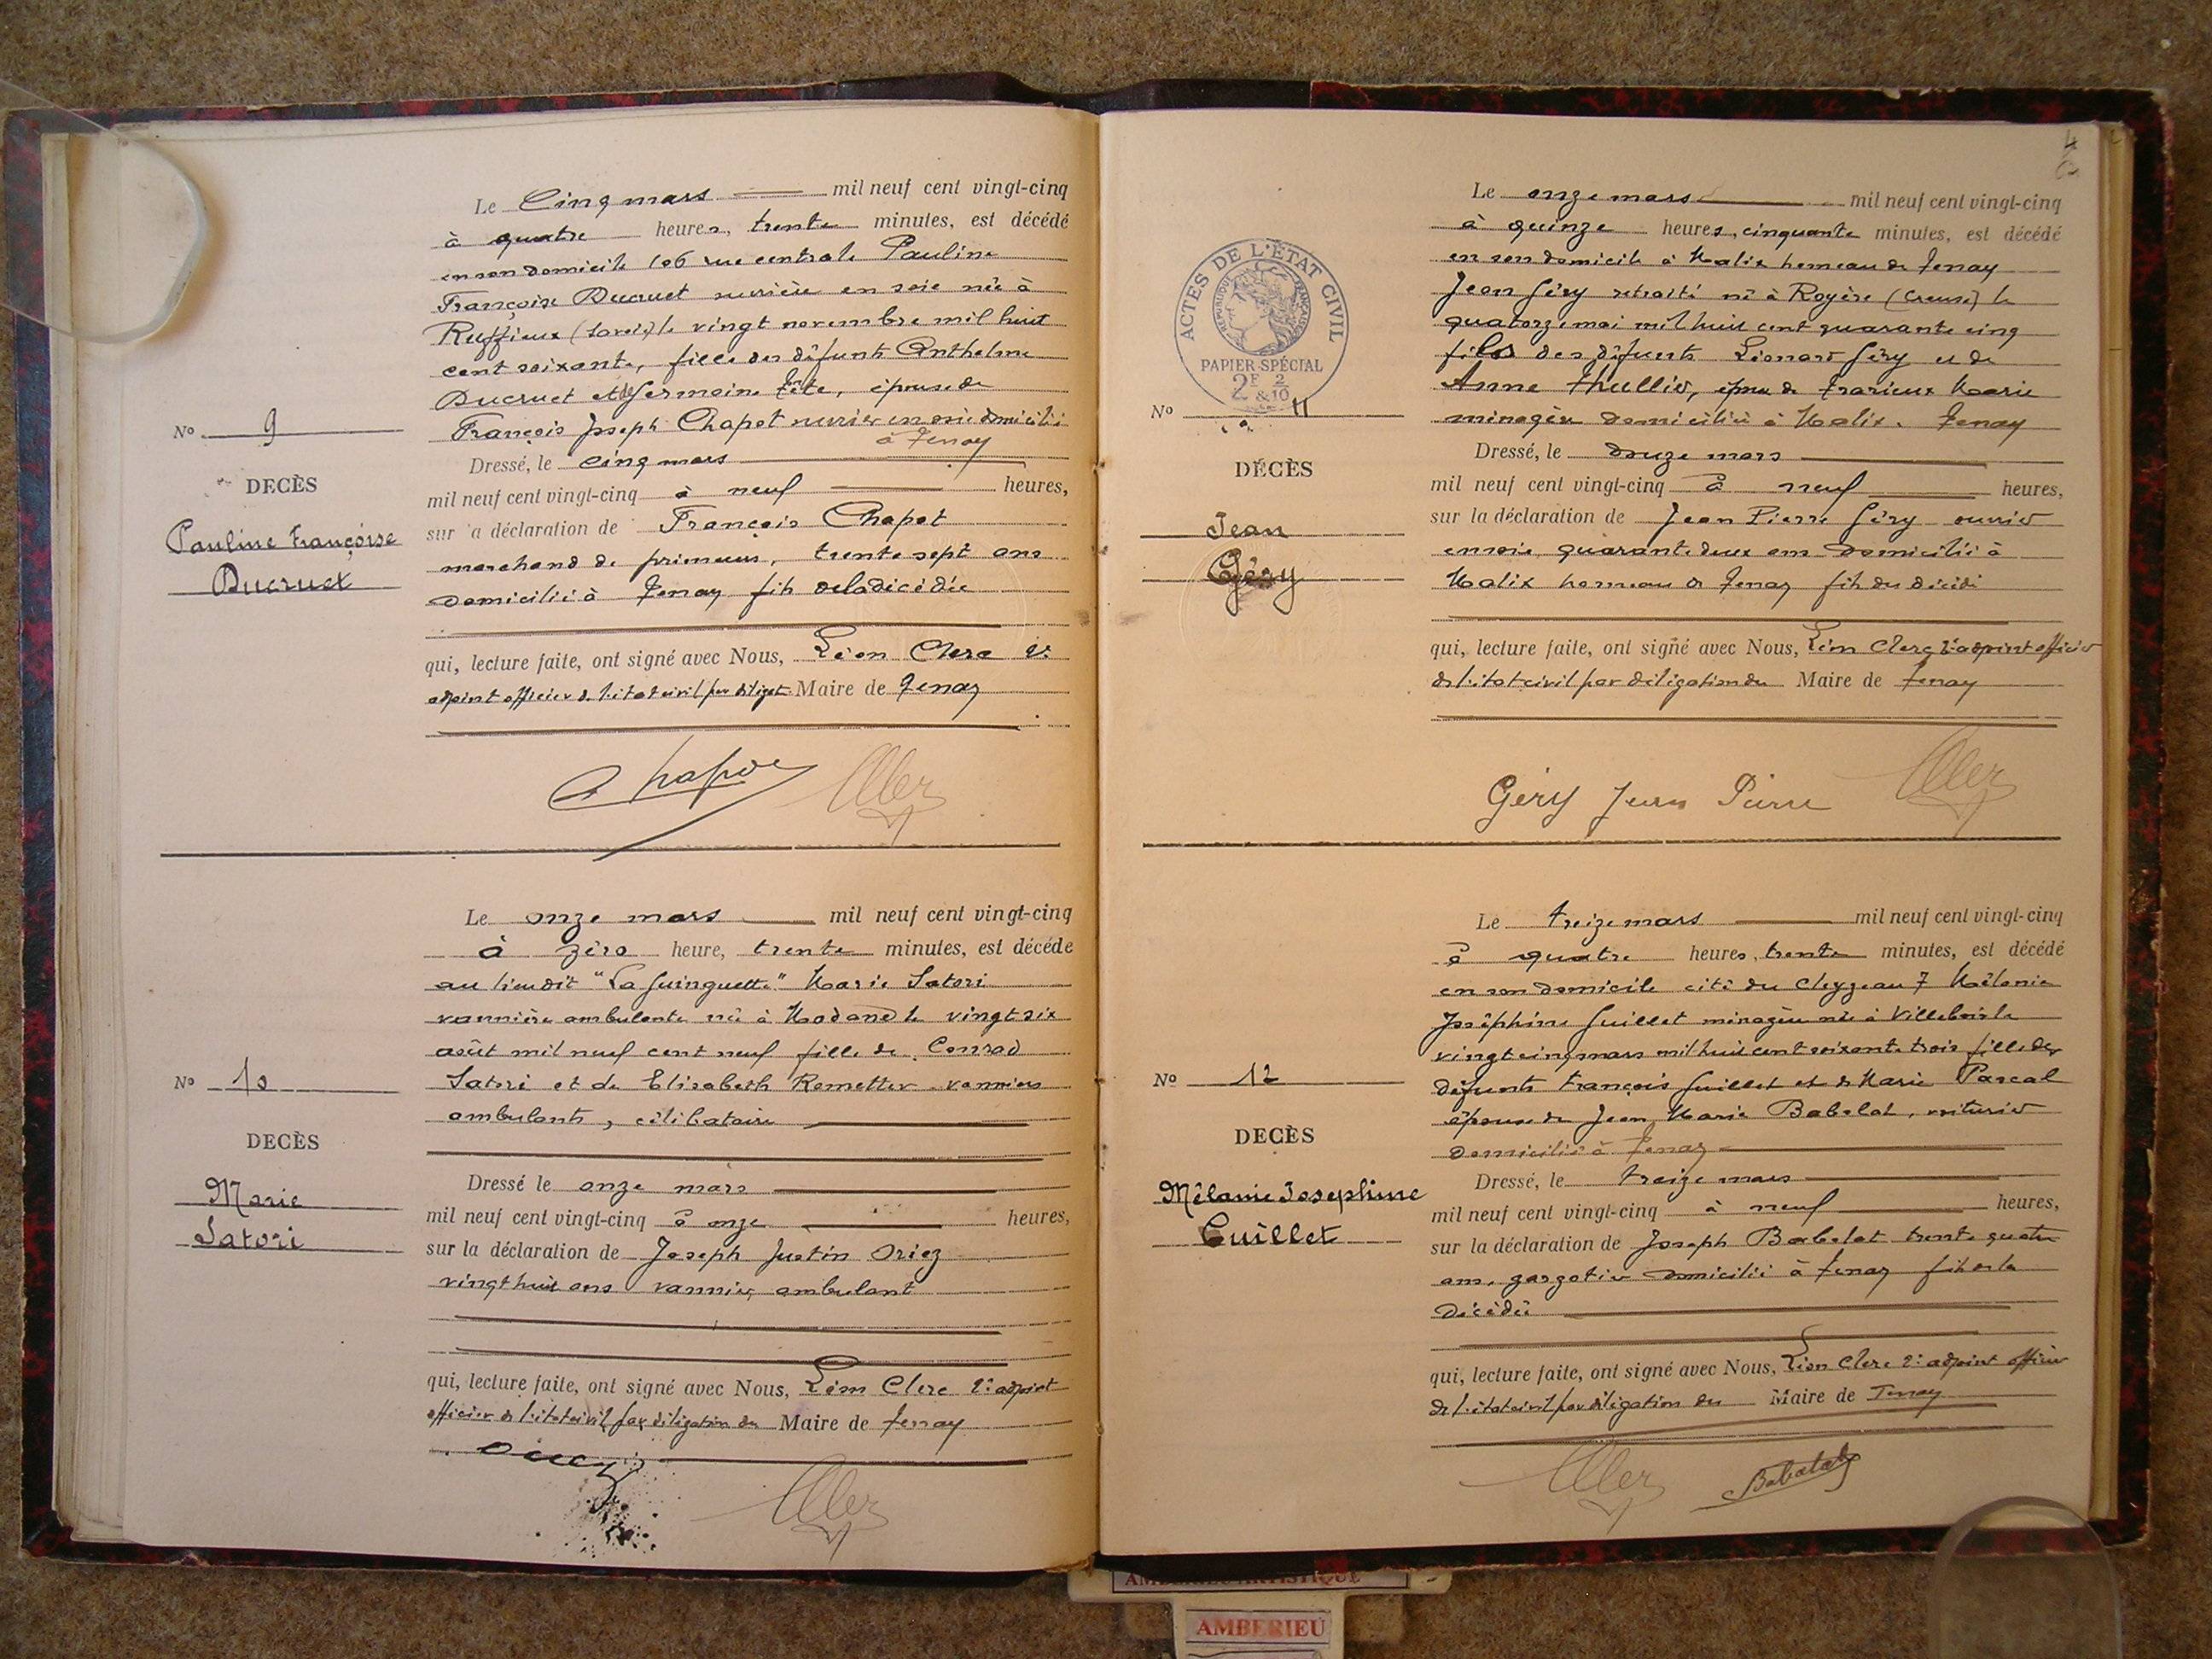 Le Cinq mars mil neuf cent vingt-cinq
à quatre heures, trente minutes, est décédé
en son domicile 106 rue centrale Pauline
Françoise Ducruet ouvrière en soie née à
Ruffieux (Savoie) le vingt novembre mil huit
cent soixante, fille des défunts Anthelme
Ducruet et de Germaine Tête, épouse de
François Joseph Chapot ouvrier en soie domicilié
à Tenay
No 9
DECÈS
Pauline Françoise
Ducruet
Dressé, le cinq mars
mil neuf cent vingt-cinq à neuf heures,
sur la déclaration de François Chapot
marchand de primeurs, trente sept ans
domicilié à Tenay fils de la décédée
qui, lecture faite, ont signé avec Nous, Léon Clerc 2e
adjoint officier de l'état civil par délégat. Maire de Tenay
Chapot
Le onze mars mil neuf cent vingt-cinq
à zéro heure, trente minutes, est décédé
au lieu dit "La Guinguette" Marie Satori
vannière ambulante née à Modane le vingt six
août mil neuf cent neuf fille de Conrad
Satori et de Elisabeth Remetter vanniers
ambulants, célibataire
No 10
DECÈS
Marie
Satori
Dressé le onze mars
mil neuf cent vingt-cinq à onze heures,
sur la déclaration de Joseph Justin Oriez
vingt huit ans vannier ambulant
qui, lecture faite, ont signé avec Nous, Léon Clerc 2e adjoint
officier de l'état civil par délégation du Maire de Tenay
ACTES DE L'ÉTAT CIVIL
RÉPUBLIQUE FRANÇAISE
PAPIER SPÉCIAL
2F & 2/10
Le onze mars mil neuf cent vingt-cinq
à quinze heures, cinquante minutes, est décédé
en son domicile à Malix hameau de Tenay
Jean Géry retraité né à Royère (Creuse) le
quatorze mai mil huit cent quarante cinq
fils des défunts Léonard Géry et de
Anne Thullier, époux de Trarieux Marie
ménagère domiciliée à Malix. Tenay
No 11
DÉCÈS
Jean
Géry
Dressé, le douze mars
mil neuf cent vingt-cinq à neuf heures,
sur la déclaration de Jean Pierre Géry ouvrier
en soie, quarante deux ans domicilié à
Malix hameau de Tenay fils du décédé
qui, lecture faite, ont signé avec Nous, Léon Clerc 2e adjoint officier
de l'état civil par délégation du Maire de Tenay
Géry Jean Pierre
Le treize mars mil neuf cent vingt-cinq
à quatre heures, trente minutes, est décédé
en son domicile cité du Cleyzeau 7 Mélanie
Joséphine Guillet ménagère née à Villebois le
vingt cinq mars mil huit cent soixante trois fille des
défunts François Guillet et de Marie Pascal
épouse de Jean Marie Babolat, voiturier
domicilié à Tenay
No 12
DECÈS
Mélanie Josephine
Guillet
Dressé, le treize mars
mil neuf cent vingt-cinq à neuf heures,
sur la déclaration de Joseph Babolat trente quatre
ans, gargotier domicilié à Tenay fils de la
décédée
qui, lecture faite, ont signé avec Nous, Léon Clerc 2e adjoint officier
de l'état civil par délégation du Maire de Tenay
Babolat
AMBERIEU ARTISTIQUE
AMBERIEU